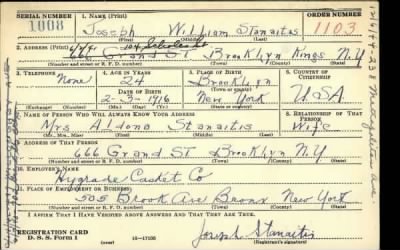 SERIAL NUMBER 1. NAME (Print) ORDER NUMBER
1008 Joseph William Stanaitis 1103
(First) (Middle) (Last)
2. ADDRESS (Print)
666 Grand ST Brooklyn Kings N.Y
(Number and street or R. F. D. number) (Town) (County) (State)
3. TELEPHONE 4. AGE IN YEARS 5. PLACE OF BIRTH 6. COUNTRY OF CITIZENSHIP
None 24 Brooklyn
DATE OF BIRTH (Town or county)
2-3-1916 New York USA
(Exchange) (Number) (Mo.) (Day) (Yr.) (State or country)
7. NAME OF PERSON WHO WILL ALWAYS KNOW YOUR ADDRESS 8. RELATIONSHIP OF THAT PERSON
Mrs Aldona Stanaitis Wife
(Mr., Mrs., Miss) (First) (Middle) (Last)
9. ADDRESS OF THAT PERSON
666 Grand ST Brooklyn N.Y
(Number and street or R. F. D. number) (Town) (County) (State)
10. EMPLOYER'S NAME
Hygrade Casket Co
11. PLACE OF EMPLOYMENT OR BUSINESS
505 Brook Ave Bronx New York
(Number and street or R. F. D. number) (Town) (County) (State)
I AFFIRM THAT I HAVE VERIFIED ABOVE ANSWERS AND THAT THEY ARE TRUE.
REGISTRATION CARD
D. S. S. Form 1 16-17105 Joseph Stanaitis
(Registrant's signature)